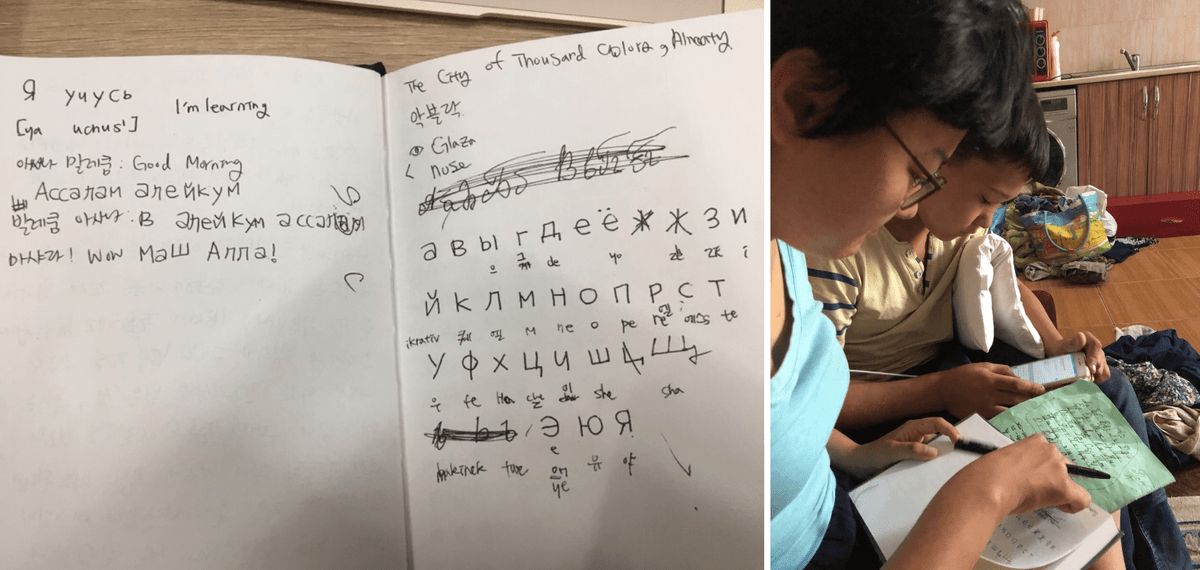 Я учусь I'm learning
[ya uchus']
아싸라 말레쿰 : Good Morning
Ассалам алейкум
발레쿰 아싸라 : В алейкум ассалам
마샤라! Wow Маш Алла!
The City of Thousand Colors, Almaty
악블락
Glaza
< nose
а в ы г д е ё ж ж з и
으 de yo 제 i
й к л м н о п р с т
ikrativ 엘 м ne o pe re 에스 te
у ф х ц ч ш щ
우 fe Ha she sha
ь ъ э ю я
e
유 야
ye